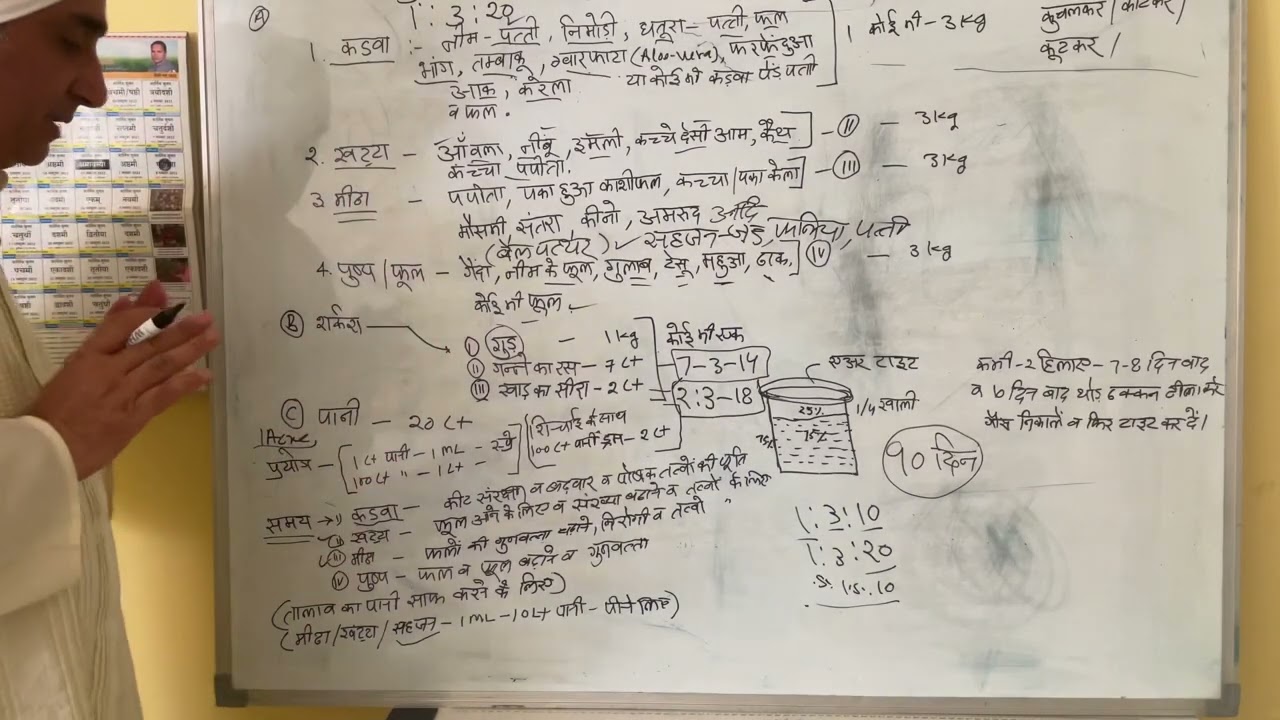 1 : 3 : 20
(A)
1. कडवा :- नीम - पत्ती, निमोड़ी, धतूरा = पत्ती, फल
भांग, तम्बाकू, ग्वारफाटा (Aloo-vera), फरफेंदुआ
आक, करेला या कोई भी कडवा पेड़ पत्ती
व फल.
1 कोई भी - 3 kg
कुचलकर / काटकर /
कूटकर /
2. खट्टा - आँवला, नीबू, इमली, कच्चे देसी आम, कैथ
कच्चा पपीता. - (II) - 3 kg
3. मीठा - पपीता, पका हुआ काशीफल, कच्चा/पका केला - (III) - 3 kg
मौसमी, संतरा कीनो, अमरुद आदि
(बेल पत्थर) सहजन-जड़, फलिया, पत्ती
4. पुष्प / फूल - गेंदा, नीम के फूल, गुलाब, टेसू, महुआ, ढाक, (IV) - 3 kg
कोई भी फूल -
(B) शर्करा
(I) गुड़ - 1 kg
(II) गन्ने का रस - 7 Lt
(III) खांड का सीरा - 2 Lt
कोई भी एक
7-3-14
2:3-18
एअर टाइट
1/4 खाली
25%
75%
75%
कभी-2 हिलाए - 7-8 दिन बाद
व 10 दिन बाद थोड़ ढक्कन ढीला करे
गैस निकालें व फिर टाइट कर दें।
90 दिन
(C) पानी - 20 Lt
1Acre
प्रयोग - 1 Lt पानी - 1 ML - स्प्रे
100 Lt " - 1 Lt -
सिंचाई के साथ
100 Lt पानी ड्रम - 2 Lt
समय → I) कडवा - कीट संरक्षण व बढ़वार व पोषक तत्वों की पूर्ति
(II) खट्टा - फूल आने के लिए व संख्या बढाने व तत्वों के लिए
(III) मीठा - फलों की गुणवत्ता बढाने, निरोगी व तत्वो "
IV पुष्प - फल व फूल बढ़ाने व गुणवत्ता
(तालाब का पानी साफ करने के लिए)
(मीठा/खट्टा/सहजन - 1 ML - 10 Lt पानी - पीने लिए)
1 : 3 : 10
1 : 3 : 20